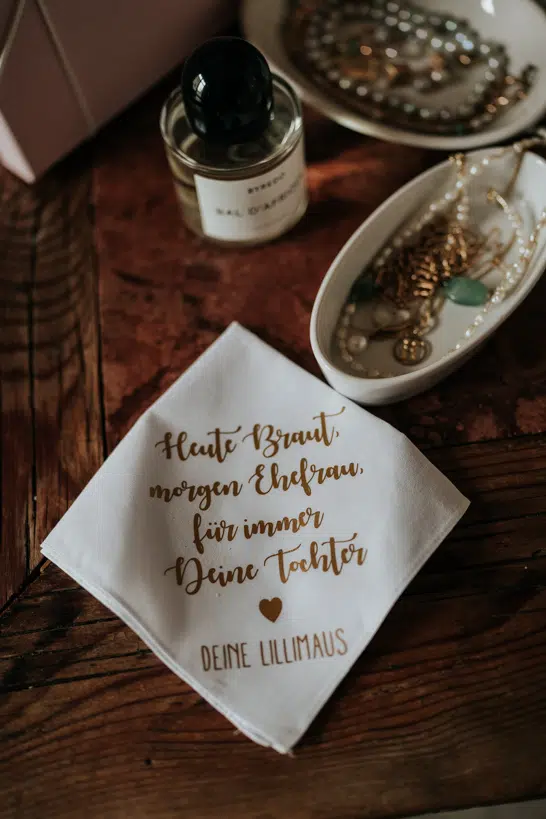 BYREDO
BAL D'AFRIQUE
Heute Braut,
morgen Ehefrau,
für immer
Deine Tochter
DEINE LILLIMAUS